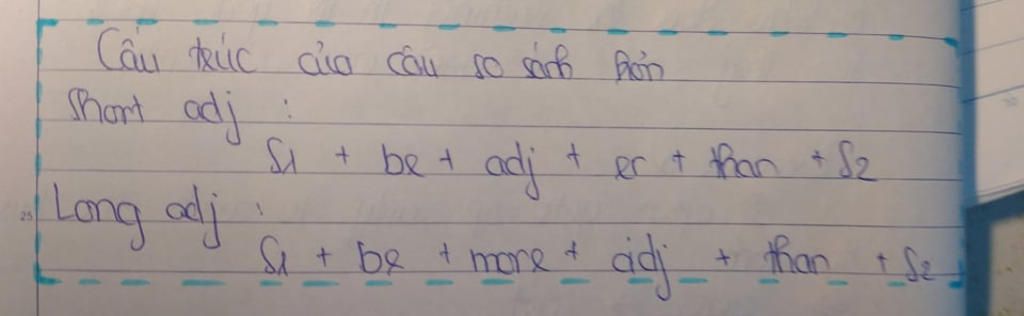 Cấu trúc của câu so sánh hơn
Short adj :
S1 + be + adj + er + than + S2
25
Long adj :
S1 + be + more + adj + than + S2